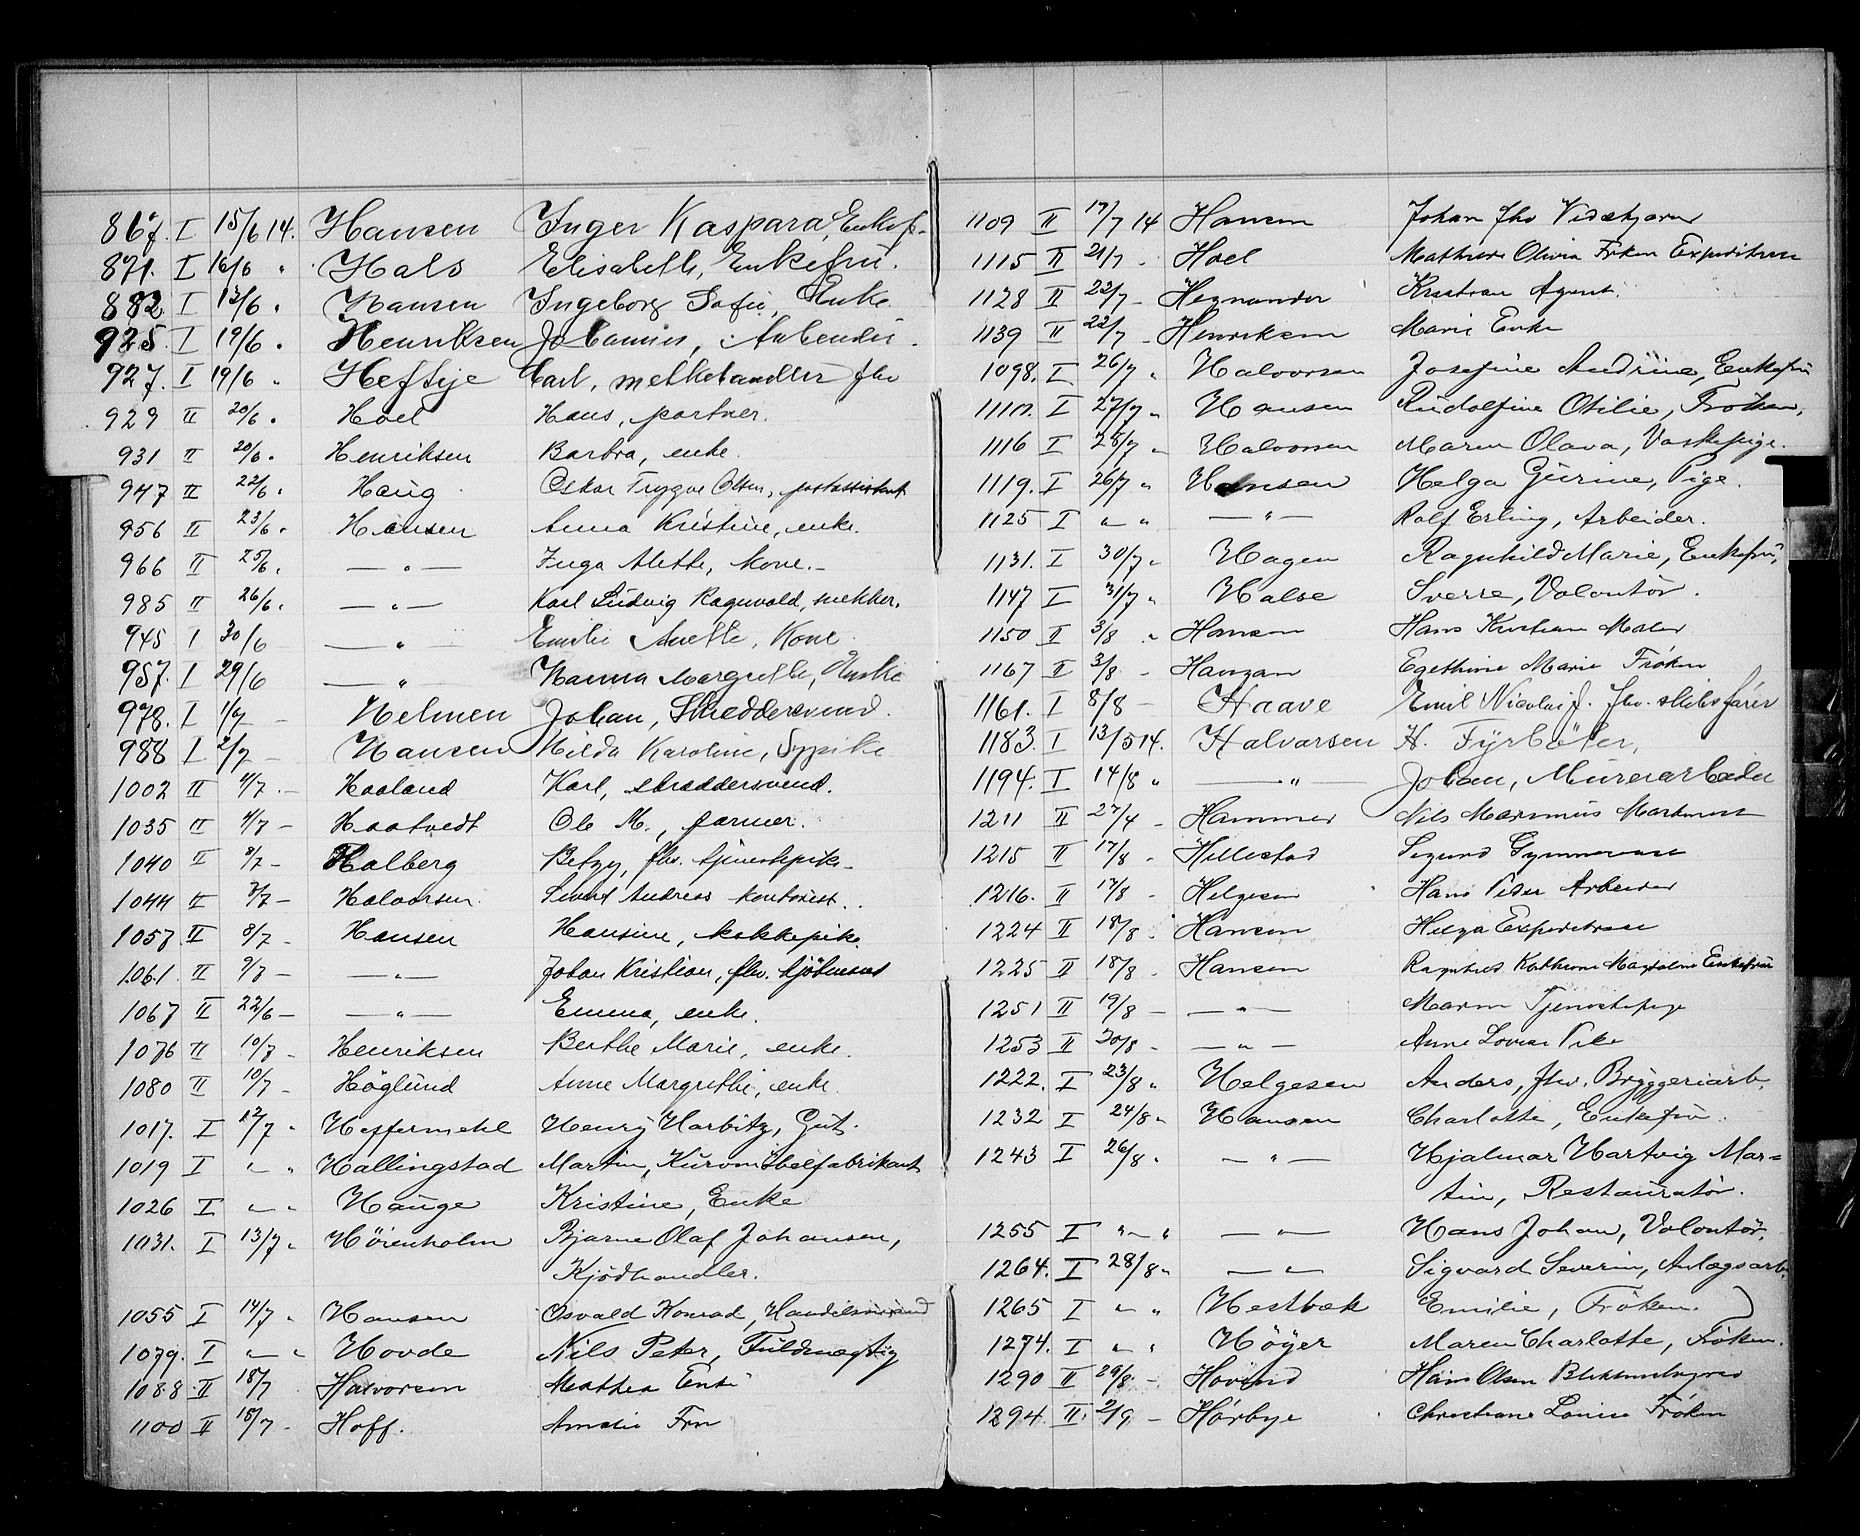 867. I 15/6 14. Hansen Inger Kaspara, Enkef.
871. I 16/6 " Hals Elisabeth, Enkefru.
882 I 13/6 " Hansen Ingeborg Sofie, Enke.
925. I 19/6 " Henriksen Johannes, Arbeider.
927. I 19/6 " Heftye Carl, melkehandler fhv
929 II 20/6 " Hoel Hans, portner.
931 II 20/6 " Henriksen Barbra, enke.
947 II 22/6 " Haug Oskar Trygve Olsen, postassistent
956 II 23/6 " Hansen Anna Kristine, enke.
966 II 25/6 " — " — Inga Alette, kone.
985 II 26/6 " — " — Karl Ludvig Ragnvald, snekker.
945 I 30/6 — " — Emilie Anette, Kone
957. I 29/6 — " — Hanna Margrethe, Enke
978. I 1/7 — Helmen Johan, Skreddersvend.
988 I 2/7 — Hansen Hilda Karoline, Sypike
1002 II 4/7 — Haaland Karl, skræddersvend.
1035 II 4/7 — Haatvedt Ole M., farmer.
1040 II 8/7 — Halberg Betzy, fhv. tjenestepik
1044 II 7/7 — Halvorsen Sivert Andreas kontorist.
1057 II 8/7 — Hansen Hansine, kokkepike
1061 II 9/7 — — " — Johan Kristian, fhv. sjömand
1067 II 22/6 — — " — Emma, enke.
1076 II 10/7 — Henriksen Berthe Marie, enke.
1080 II 10/7 — Höglund Anne Margrethe, enke.
1017. I 12/7 " Heffermehl Henry Harbitz, Gut.
1019 I " " Hallingstad Martin, Kurvmöbelfabrikant
1026 I " " Hauge Kristine, Enke
1031. I 13/7 " Hörenholm Bjarne Olaf Johansen,
Kjödhandler.
1055 I 14/7 " Hansen Osvald Konrad, Handelsmand
1079. I " " Hovde Nils Peter, Fuldmægtig
1088 II 18/7 Halvorsen Mathea Enke
1100 II 18/7 — Hoff. Amalie Fru
1109 II 17/7 14 Hansen Johan fhv Viseskjorer
1115 II 21/7 — Hoel Mathilde Olivia Frøken Expeditrice
1128 II 22/7 — Hegnander Kristian Agent.
1139 II 22/7 — Henriksen Marie Enke
1098. I 26/7 " Halvorsen Josefine Andrine, Enkefru
1110. I 27/7 " Hansen Rudolfine Otilie, Fröken,
1116 I 25/7 " Halvorsen Maren Olava, Vaskepige.
1119. I 26/7 " Hansen Helga Gurine, Pige.
1125 I " " — " — Rolf Erling, Arbeider.
1131. I 30/7 " Hagen Ragnhild Marie, Enkefru,
1147 I 31/7 " Halse Sverre, Volontör.
1150 II 3/8 " Hansen Hans Kristian Maler
1167 II 3/8 — Hanzan Egethine Marie Frøken
1161. I 8/8 — Haave Emil Nicolai J. fhv. skibsfører
1183. I 13/5 14. Halvorsen H. Fyrbøter,
1194. I 14/8 " — " — Johan, Murerarbeider
1211 II 27/4 — Hammer Nils Marinius
1215 II 17/8 — Hillestad Sigurd Gymnasiast
1216. II 17/8 — Helgesen Hans Peder Arbeider
1224 II 18/8 — Hansen Helga Expeditrice
1225 II 18/8 — Hansen Ragnhild Kathrine Magdalene Enkefru
1251 II 19/8 — — " — Maren Tjenestepige
1253 II 20/8 — — " — Anne Lovise Pike
1222. I 23/8 " Helgesen Anders, fhv. Bryggeriarb.
1232 I 24/8 " Hansen Charlotte, Enkefru.
1243 I 26/8 " — " — Hjalmar Hartvig Mar=
tin, Restauratör.
1255 I " " — " — Hans Johan, Volontör,
1264. I 28/8 " — " — Sigvard Severin, Anlægsarb.
1265 I " " Hestbæk Emilie, Fröken.
1274. I " " Höyer Maren Charlotte, Fröken.
1290 II 29/8 — Hovind Hans Olsen
1294. II. 2/9 — Hörbye Christiane Louise Frøken